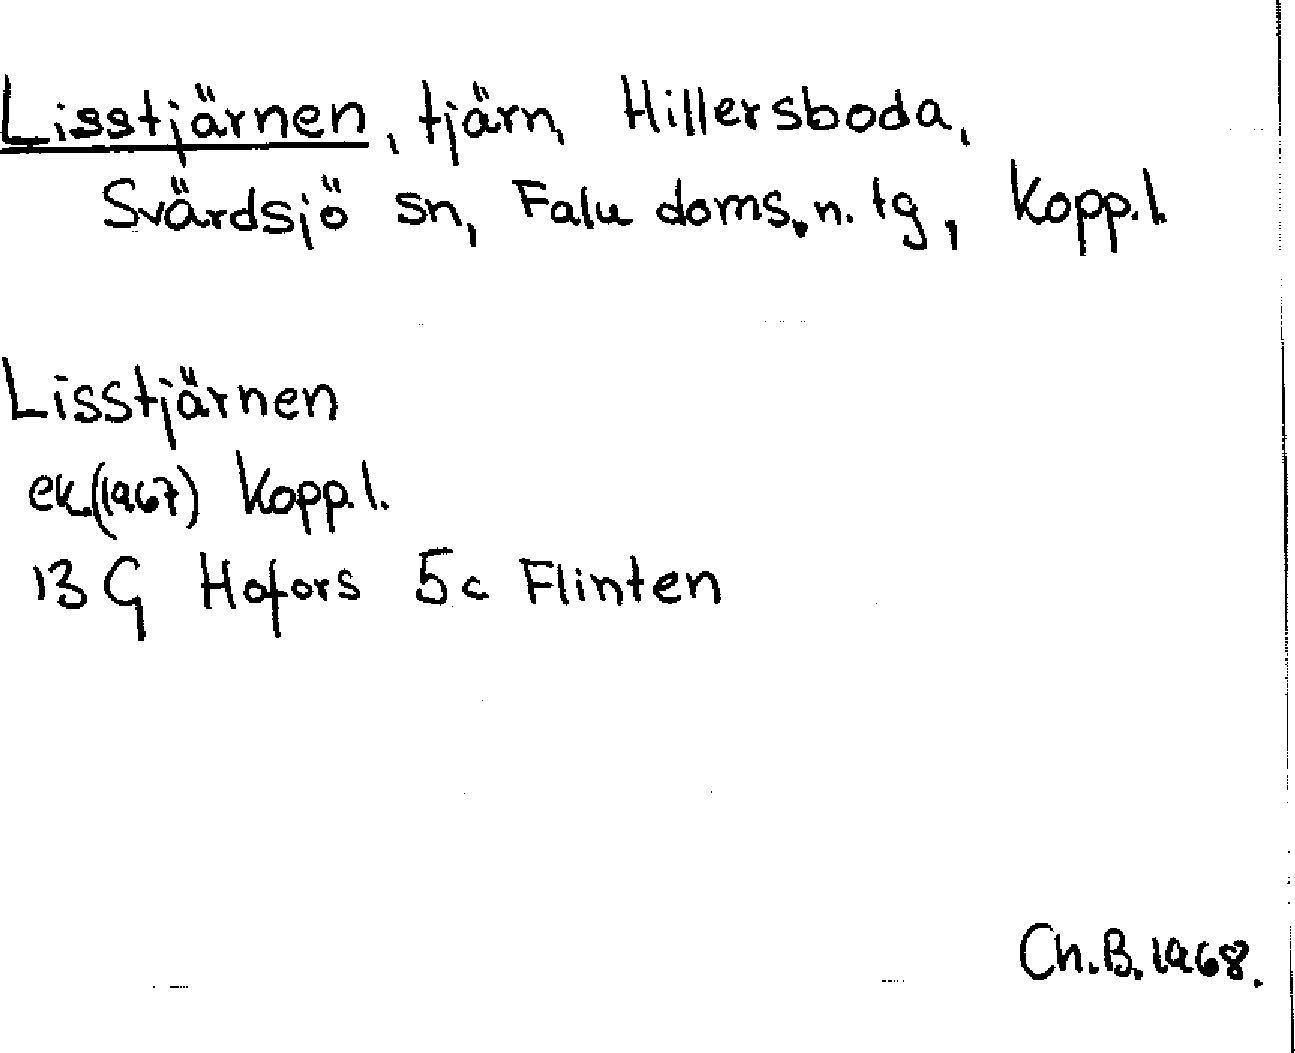 Lisstjärnen, tjärn, Hillersboda,
Svärdsjö sn, Falu doms. n. tg, Kopp. l.
Lisstjärnen
ek. (1967) Kopp. l.
13 G Hofors 5c Flinten
Ch. B. 1968.